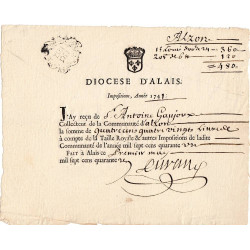 Alzon
360
120
480
DIOCESE D'ALAIS.
Imposition, Année 1741
J'Ay reçu de Sr Antoine
Collecteur de la Communauté d'alzon
la somme de quatre cens quatre vingts
à compte de la Taille Royale & autres Impositions de ladite
Communauté de l'année mil sept cens quarante
FAIT à Alais ce Premier may
mil sept cens quarante